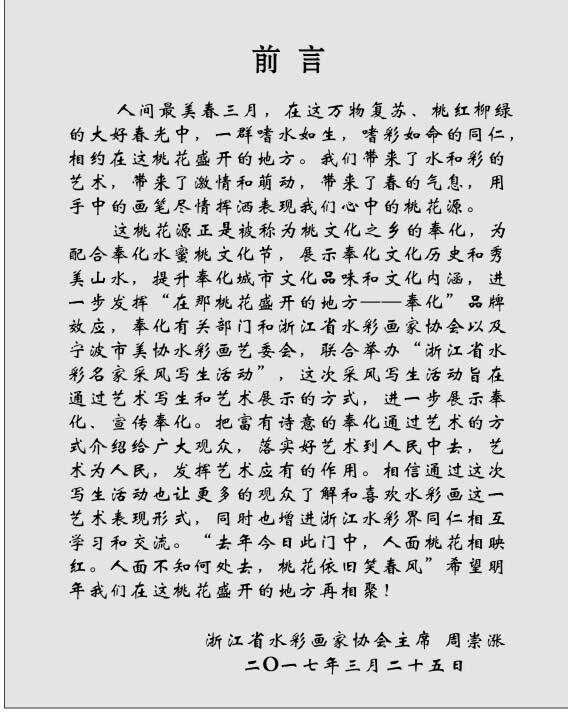 前言
人间最美春三月，在这万物复苏、桃红柳绿
的大好春光中，一群嗜水如生，嗜彩如命的同仁，
相约在这桃花盛开的地方。我们带来了水和彩的
艺术，带来了激情和萌动，带来了春的气息，用
手中的画笔尽情挥洒表现我们心中的桃花源。
这桃花源正是被称为桃文化之乡的奉化，为
配合奉化水蜜桃文化节，展示奉化文化历史和秀
美山水，提升奉化城市文化品味和文化内涵，进
一步发挥“在那桃花盛开的地方——奉化”品牌
效应，奉化有关部门和浙江省水彩画家协会以及
宁波市美协水彩画艺委会，联合举办“浙江省水
彩名家采风写生活动”，这次采风写生活动旨在
通过艺术写生和艺术展示的方式，进一步展示奉
化、宣传奉化。把富有诗意的奉化通过艺术的方
式介绍给广大观众，落实好艺术到人民中去，艺
术为人民，发挥艺术应有的作用。相信通过这次
写生活动也让更多的观众了解和喜欢水彩画这一
艺术表现形式，同时也增进浙江水彩界同仁相互
学习和交流。“去年今日此门中，人面桃花相映
红。人面不知何处去，桃花依旧笑春风”希望明
年我们在这桃花盛开的地方再相聚！
浙江省水彩画家协会主席 周崇涨
二〇一七年三月二十五日